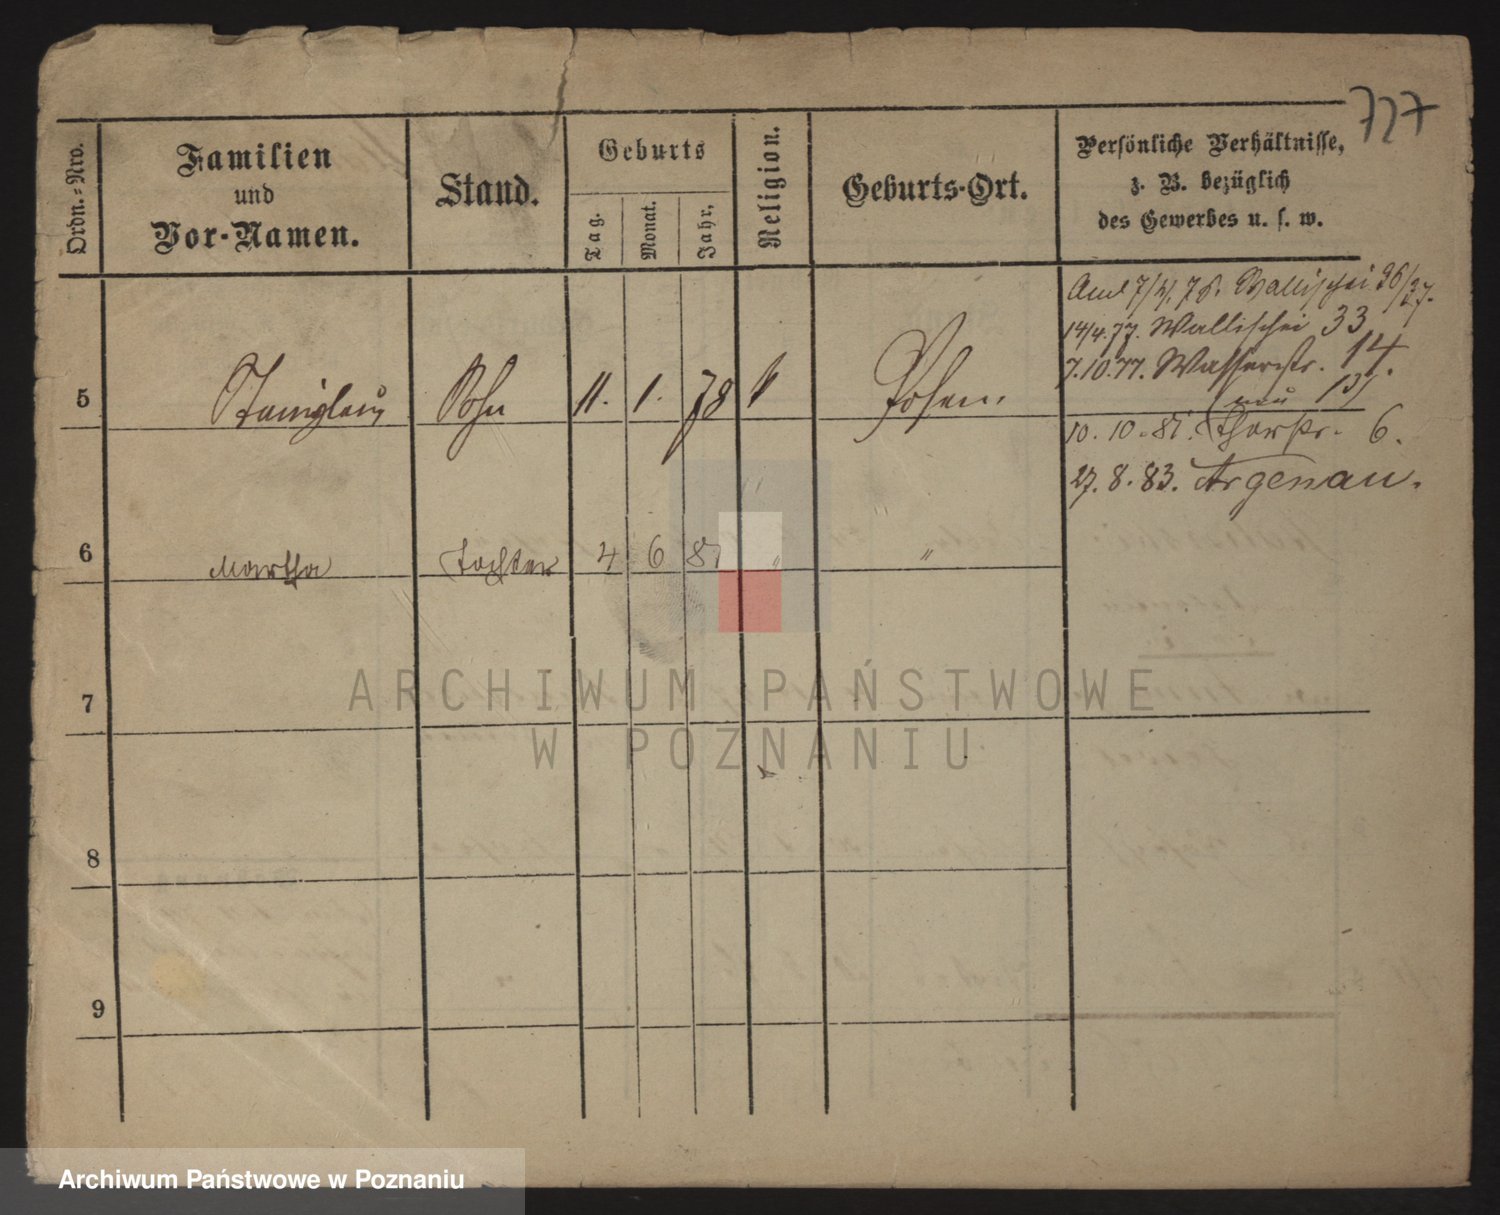 727
Ordn.-Nro.
Familien
und
Vor-Namen.
Stand.
Geburts
Tag.
Monat.
Jahr.
Religion.
Geburts-Ort.
Persönliche Verhältnisse,
z. B. bezüglich
des Gewerbes u. s. w.
Wallischei 26/27.
14/4.77. Wallischei 33
7.10.77. Wasserstr. 14.
neu 13)
5 Stanislaus Sohn 11. 1. 78 " Posen.
10.10.81. Thorstr. 6.
27.8.83. Argenau.
6 Martha Tochter 4 6 81 " "
7
8
9
ARCHIWUM PAŃSTWOWE
W POZNANIU
Archiwum Państwowe w Poznaniu